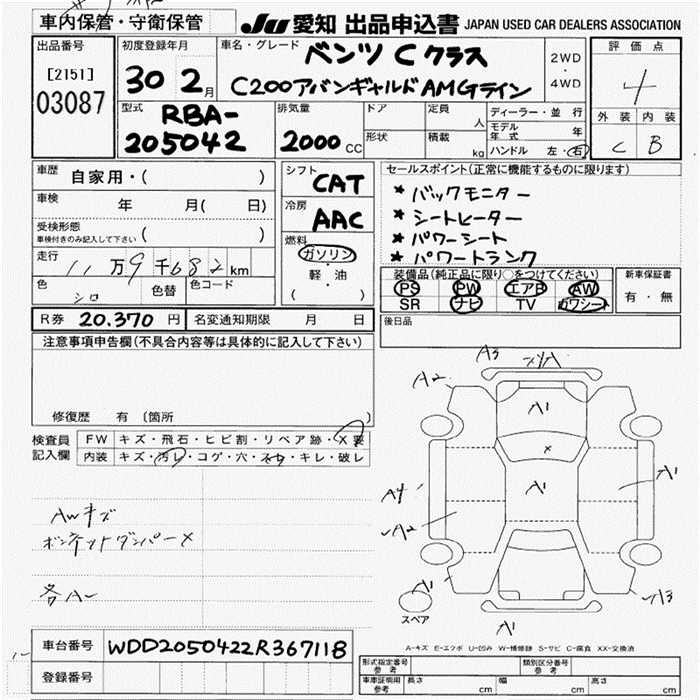 車内保管・守衛保管
JU 愛知 出品申込書 JAPAN USED CAR DEALERS ASSOCIATION
出品番号
[2151]
03087
初度登録年月
30年 2月
車名・グレード
ベンツ Cクラス
C200アバンギャルド AMGライン
2WD
・
4WD
評価点
4
外装 内装
C B
型式
RBA-
205042
排気量
2000 CC
ドア
形状
定員 人
積載 kg
ディーラー・並行
モデル年式 年
ハンドル 左・右
車歴 自家用・( )
車検 年 月( 日)
受検形態
車検付きのみ記入して下さい ( )
走行 11万9千682km
色 シロ 色替 色コード
シフト
CAT
冷房
AAC
燃料
ガソリン
・
軽・油
( )
セールスポイント(正常に機能するものに限ります)
★ バックモニター
★ シートヒーター
★ パワーシート
★ パワートランク
装備品(純正品に限り○をつけてください)
PS PW エアB AW
SR ナビ TV カワシート
新車保証書
有・無
R券 20.370 円 名変通知期限 月 日
後日品
注意事項申告欄(不具合内容等は具体的に記入して下さい)
修復歴 有 〔箇所 〕
検査員
記入欄
FW キズ・飛石・ヒビ割・リペア跡・X要
内装 キズ・汚レ・コゲ・穴・ネジ・キレ・破レ
AWキズ
ボンネットダンパー×
各A-
A3
A2
A1
×
A1
A1
A4
A2
A1
A3
A1
スペア
A-キズ E-エクボ U-凹み W-補修跡 S-サビ C-腐食 XX-交換済
車台番号 WDD2050422R367118
登録番号
形式指定番号
参考
類別区分番号
参考
車庫証明用
参考
長さ cm 幅 cm 高さ cm